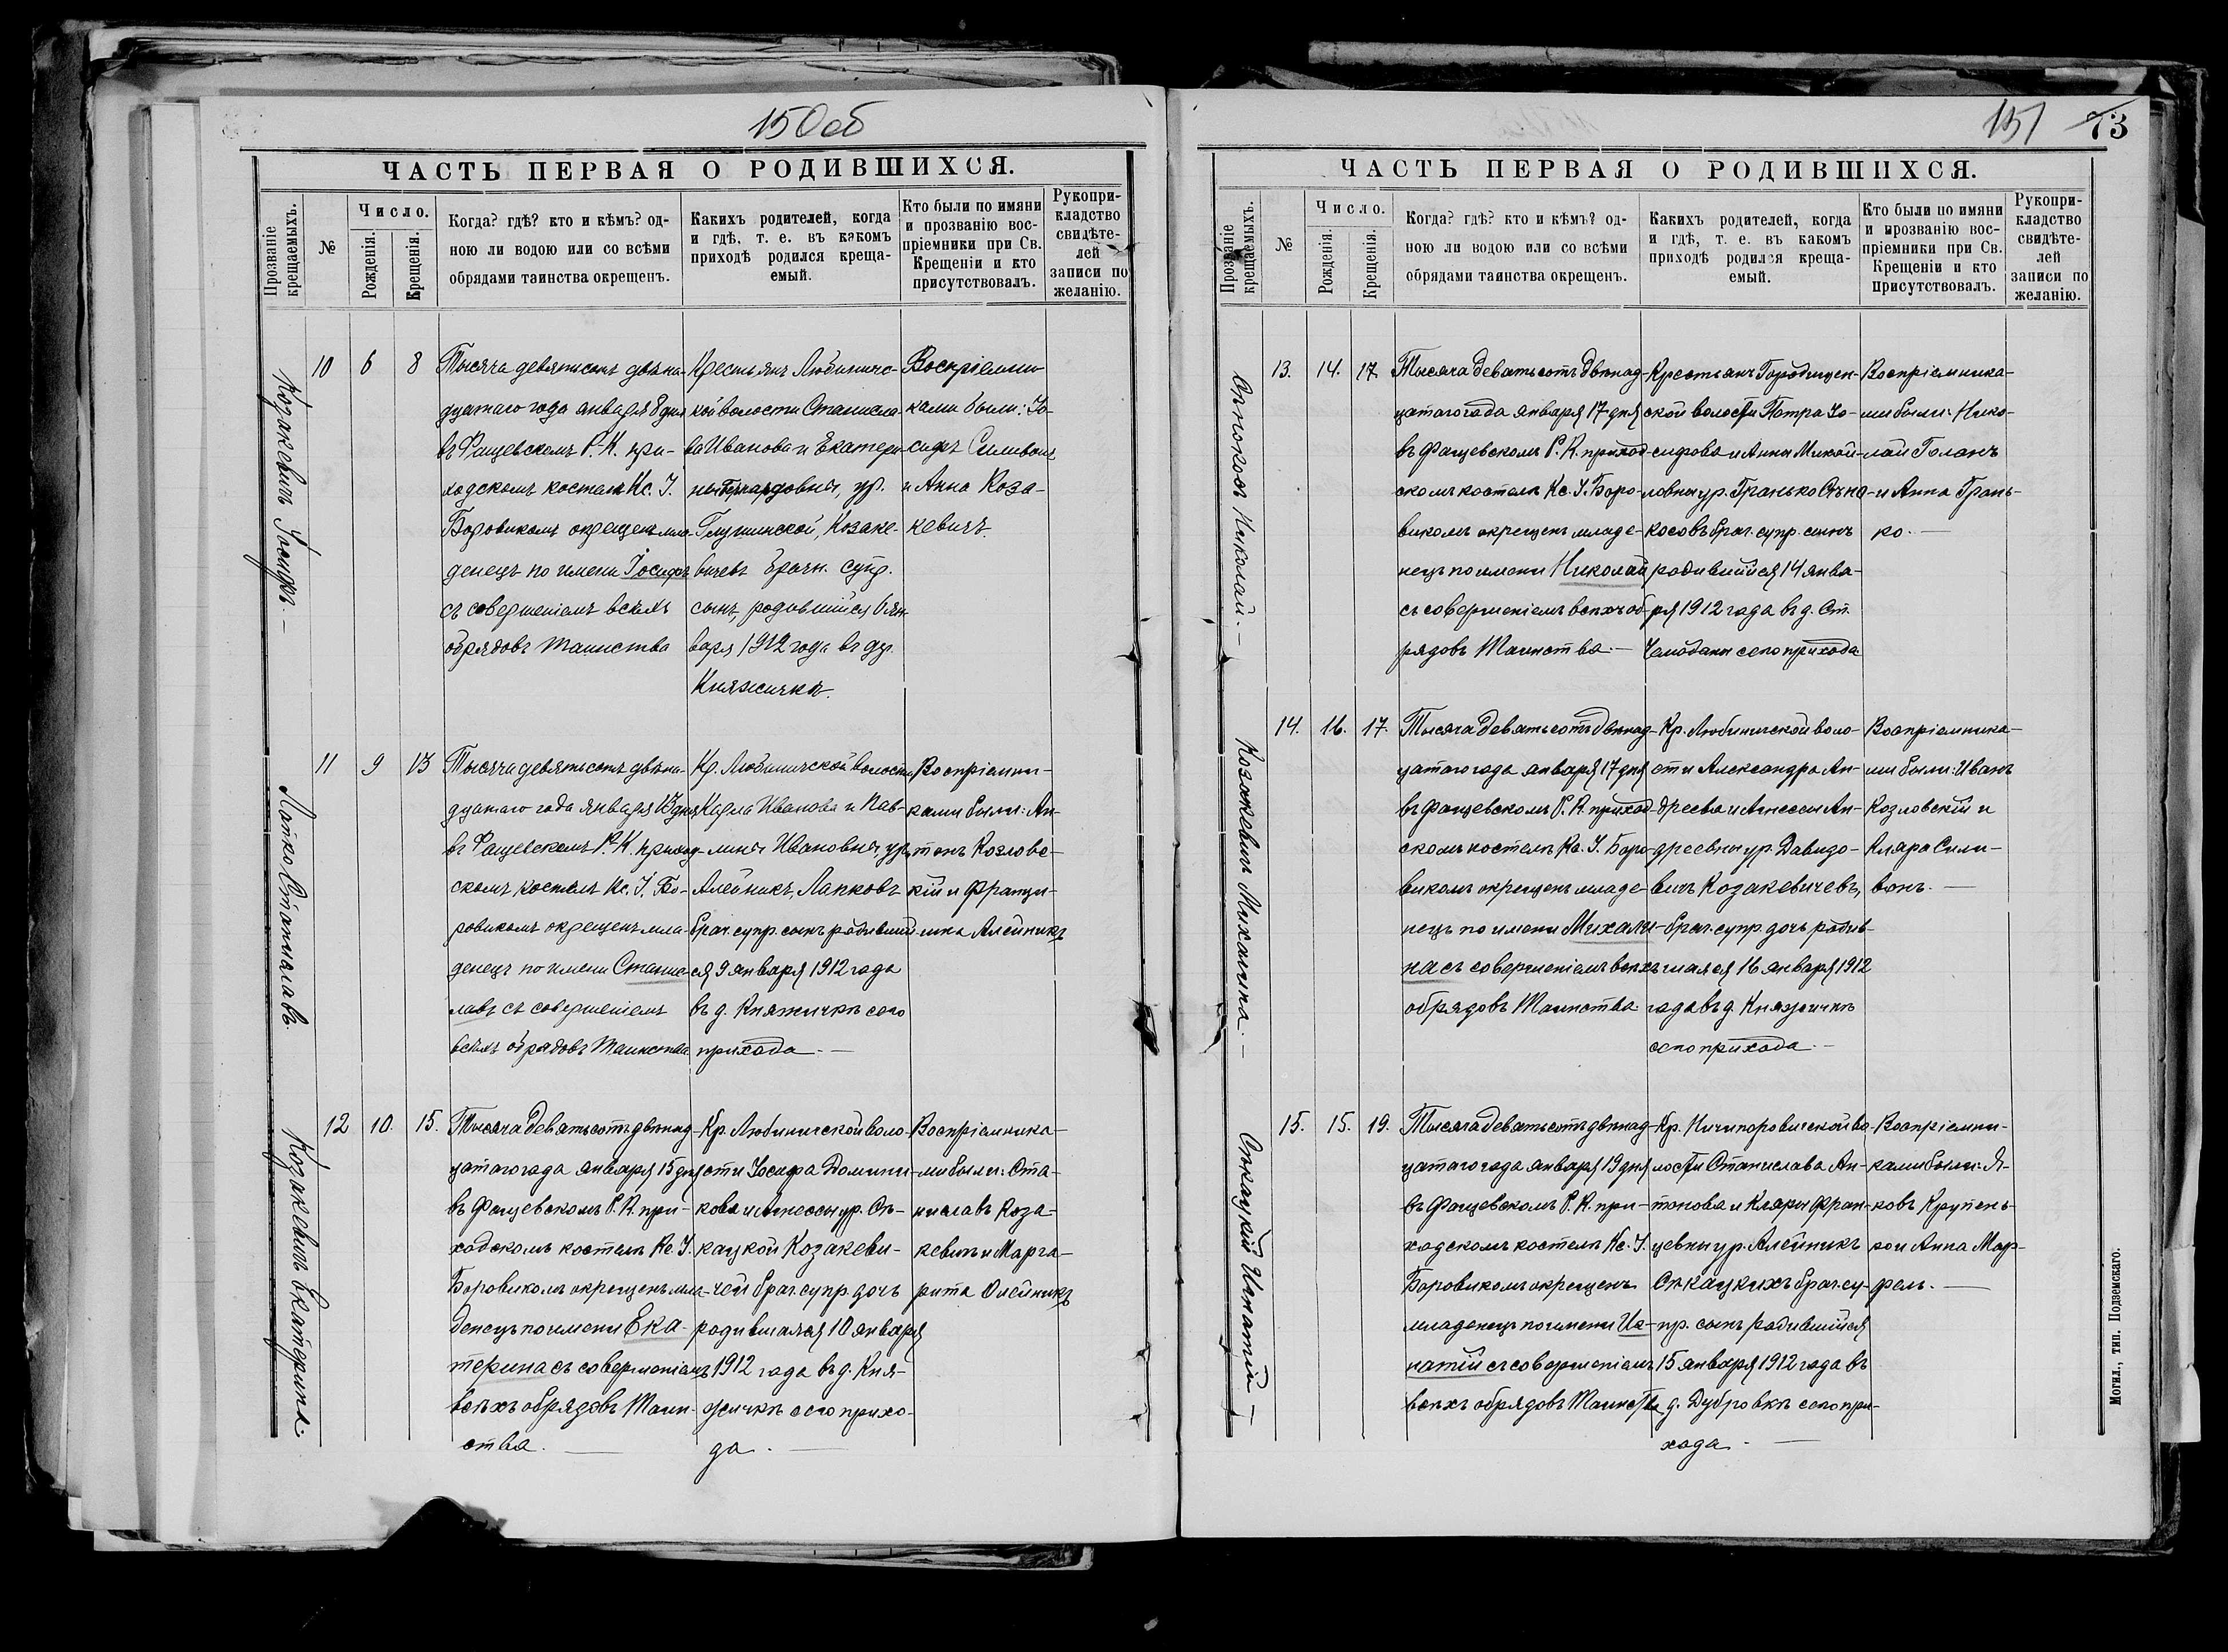 150об
ЧАСТЬ ПЕРВАЯ О РОДИВШИХСЯ.
Прозваніе крещаемыхъ.
№
Число.
Рожденія.
Крещенія.
Когда? гдѣ? кто и кѣмъ? од-
ною ли водою или со всѣми
обрядами таинства окрещенъ.
Какихъ родителей, когда
и гдѣ, т. е. въ какомъ
приходѣ родился креща-
емый.
Кто были по имяни
и прозванію вос-
пріемники при Св.
Крещеніи и кто
присутствовалъ.
Рукопри-
кладство
свидѣте-
лей
записи по
желанію.
Козакевичъ Іосифъ. —
10
6
8
Тысяча девятьсотъ двѣна-
дцатаго года января 8 дня
въ Фащевскомъ Р.-К. при-
ходскомъ костелѣ Кс. І.
Боровикомъ окрещенъ мла-
денецъ по имени Іосифъ
съ совершеніемъ всѣхъ
обрядовъ таинства
Крестьянъ Любиничс-
кой волости Станисла-
ва Иванова и Екатери-
ны ур.
Глушинской, Козаке-
вичевъ брачн. супр.
сынъ, родившійся 6 ян-
варя 1912 года въ др.
Княжичкѣ.
Воспріемни-
ками были: Іо-
сифъ Силивонъ
и Анна Коза-
кевичъ.
Лапко Станиславъ.
11
9
13
Тысяча девятьсотъ двѣна-
дцатаго года января 13 дня
въ Фащевскомъ Р.-К. приход-
скомъ костелѣ Кс. І. Бо-
ровикомъ окрещенъ мла-
денецъ по имени Станис-
лавъ съ совершеніемъ
всѣхъ обрядовъ Таинства
Кр. Любиничской волости
Карла Иванова и Пав-
лины Ивановны, ур.
Алейникъ, Лапковъ
брач. супр. сынъ родивший-
ся 9 января 1912 года
въ д. Княжичкѣ сего
прихода. —
Воспріемни-
ками были: Ан-
тонъ Козловс-
кій и Францы-
шка Алейникъ
Козакевичъ Екатерина.
12
10.
15.
Тысяча девятьсотъ двѣнад-
цатаго года января 15 дня
въ Фащевскомъ Р. К. при-
ходскомъ костелѣ Кс. І.
Боровикомъ окрещенъ мла-
денецъ по имени Ека-
терина съ совершеніемъ
всѣхъ обрядовъ Таин-
ства. —
Кр. Любиничской воло-
сти Іосифа Домини-
кова и Агнессы ур. Сѣ-
кацкой Козакеви-
чей брач. супр. дочь
родившаяся 10 января
1912 года въ д. Кня-
жичкѣ сего прихо-
да. —
Воспріемника-
ми были: Ста-
ниславъ Коза-
кевичъ и Марга-
рита Олейникъ
151 73
ЧАСТЬ ПЕРВАЯ О РОДИВШИХСЯ.
Прозваніе крещаемыхъ.
№
Число.
Рожденія.
Крещенія.
Когда? гдѣ? кто и кѣмъ? од-
ною ли водою или со всѣми
обрядами таинства окрещенъ.
Какихъ родителей, когда
и гдѣ, т. е. въ какомъ
приходѣ родился креща-
емый.
Кто были по имяни
и прозванію вос-
пріемники при Св.
Крещеніи и кто
присутствовалъ.
Рукопри-
кладство
свидѣте-
лей
записи по
желанію.
Николай. —
13.
14.
17.
Тысяча девятьсотъ двѣнад-
цатаго года января 17 дня
въ Фащевскомъ Р. К. приход-
скомъ костелѣ Кс. І. Боро-
викомъ окрещенъ младе-
нецъ по имени Николай
съ совершеніемъ всѣхъ об-
рядовъ Таинства. —
Крестьянъ Городищен-
ской волости Петра Іо-
сифова и Анны Михай-
ловны ур. Гранько Сѣно-
косовъ брач. супр. сынъ
родившійся 14 янва-
ря 1912 года въ д. Ст.
Чамоданы сего прихода
Воспріемника-
ми были: Нико-
лай Голанъ
и Анна Грань-
ко. —
Козакевичъ Михалина. —
14.
16.
17.
Тысяча девятьсотъ двѣнад-
цатаго года января 17 дня
въ Фащевскомъ Р. К. приход-
скомъ костелѣ Кс. І. Боро-
викомъ окрещенъ младе-
нецъ по имени Михали-
на съ совершеніемъ всѣхъ
обрядовъ Таинства.
Кр. Любиничской воло-
сти Александра Ан-
дреева и Агнессы Ан-
дреевны ур. Давидо-
вичъ Козакевичевъ,
брач. супр. дочь родив-
шаяся 16 января 1912
года въ д. Княжичкѣ
сего прихода. —
Воспріемника-
ми были: Иванъ
Козловскій и
Кляра Сили-
вонъ. —
Сѣкацкій Игнатій —
15.
15.
19.
Тысяча девятьсотъ двѣнад-
цатаго года января 19 дня
въ Фащевскомъ Р. К. при-
ходскомъ костелѣ Кс. І.
Боровикомъ окрещенъ
младенецъ по имени Иг-
натій съ совершеніемъ
всѣхъ обрядовъ Таинства
Кр. Ничипоровичской во-
лости Станислава Ан-
тонова и Кляры Фран-
цевны ур. Алейникъ
Сѣкацкихъ брач. су-
пр. сынъ родившійся
15 января 1912 года въ
д. Дубровкѣ сего при-
хода. —
Воспріемни-
ками были: Я-
ковъ Крупень-
ко и Анна Мар-
фель. —
Могил., тип. Подземскаго.